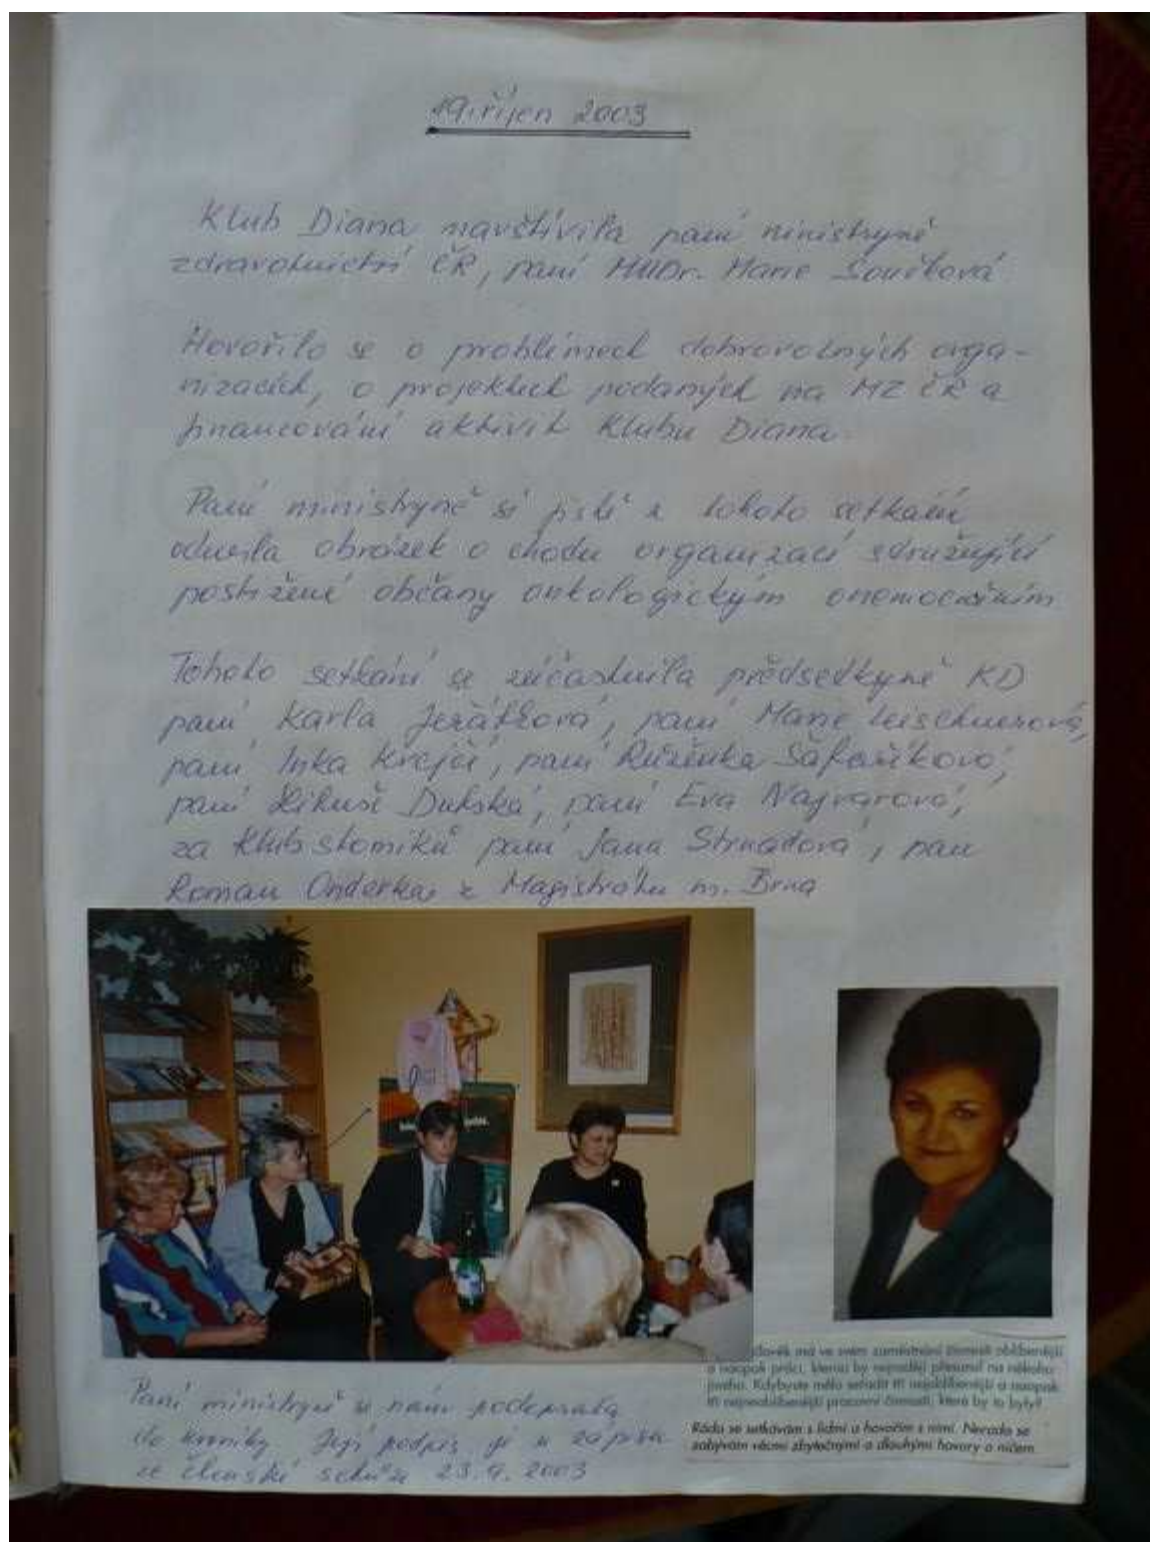 19. říjen 2003
Klub Diana navštívila paní ministryně
zdravotnictví ČR, paní MUDr. Marie Součková
Hovořilo se o problémech dobrovolných orga-
nizacích, o projektech podaných na MZ ČR a
financování aktivit Klubu Diana.
Paní ministryně si jistě z tohoto setkání
odnesla obrázek o chodu organizací sdružující
postižené občany onkologickým onemocněním
Tohoto setkání se zúčastnila předsedkyně KD
paní Karla Jeřábková, paní Marie Leischnerová,
paní Inka Krejčí, paní Růženka Šafaříková,
paní Libuše Dufská, paní Eva Najvarová,
za Klub stomiků paní Jana Strnadová, pan
Roman Onderka z Magistrátu m. Brna
člověk má ve svém zaměstnání činnosti oblíbenější
a naopak práci, kterou by nejraději přesunul na někoho
jiného. Kdybyste měla seřadit tři nejoblíbenější a naopak
tři nejneoblíbenější pracovní činnosti, které by to byly?
Ráda se setkávám s lidmi a hovořím s nimi. Nerada se
zabývám věcmi zbytečnými a dlouhými hovory o ničem.
Paní ministryně se nám podepsala
do kroniky. Její podpis je u zápisu
ze členské schůze 23.9.2003